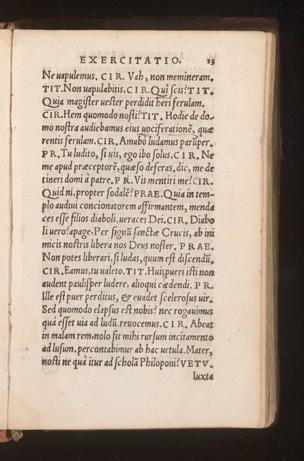 EXERCITATIO. 13
Ne uapulemus. CIR. Vah, non memineram.
TIT. Non uapulabitis. CIR. Qui scis? TIT.
Quia magister uester perdidit heri ferulam.
CIR. Hem quomodo nosti? TIT. Hodie de do-
mo nostra audiebamus eius uociferationē, quæ
rentis ferulam. CIR. Amabo ludamus parūper.
PR. Tu ludito, si uis, ego ibo solus. CIR. Ne
me apud præceptorē, quæso deferas, dic, me de
tineri domi à patre. PR. Vis mentiri me? CIR.
Quid ni, propter sodalē? PRAE. Quia in tem-
plo audiui concionatorem affirmantem, menda
ces esse filios diaboli, ueraces Dei. CIR. Diabo
li uero? apage. Per signū sanctæ Crucis, ab ini
micis nostris libera nos Deus noster. PRAE.
Non potes liberari, si ludas, quum est discendū.
CIR. Eamus, tu ualeto. TIT. Hui, pueri isti non
audent paulisper ludere, alioqui cædendi. PR.
Ille est puer perditus, & euadet scelerosus uir.
Sed quomodo elapsus est nobis? nec rogauimus
quà esset uia ad ludū. reuocemus. CIR. Abeat
in malam rem, nolo sit mihi rursum incitamento
ad lusum, percontabimur ab hac uetula. Mater,
nosti ne quà itur ad scholā Philoponi? VETV.
Iuxta